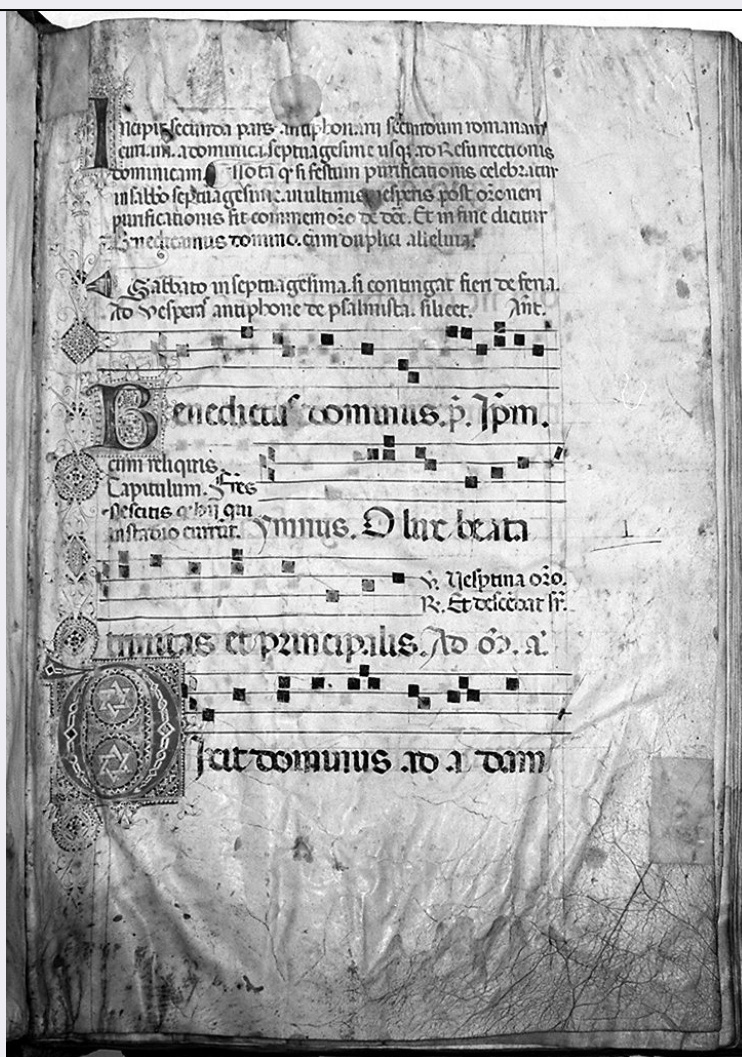 Incipit secunda pars antiphonarii secundum romanam
curiam. a dominica septuagesime usq; ad Resurrectionis
dominicam Nota q si festum purificationis celebratur
in sabbo septuagesime. in ultimis vesperis post oronem
purificationis fit commemoro de dca. Et in fine dicitur
Benedicamus domino. cum duplici alleluia.
Sabbato in septuagesima. si contingat fieri de feria.
Ad Vesperas antiphone de psalmista. silicet. Ant.
Benedictus dominus. p. Ipm.
cum reliquis
Capitulum. Fres
Nescitis q hii qui
in stadio currut. Ymnus. O lux beata
V. Vesptina oro.
R. Et descedat sr.
trinitas et principalis. Ad
Dixit dominus ad adam
1